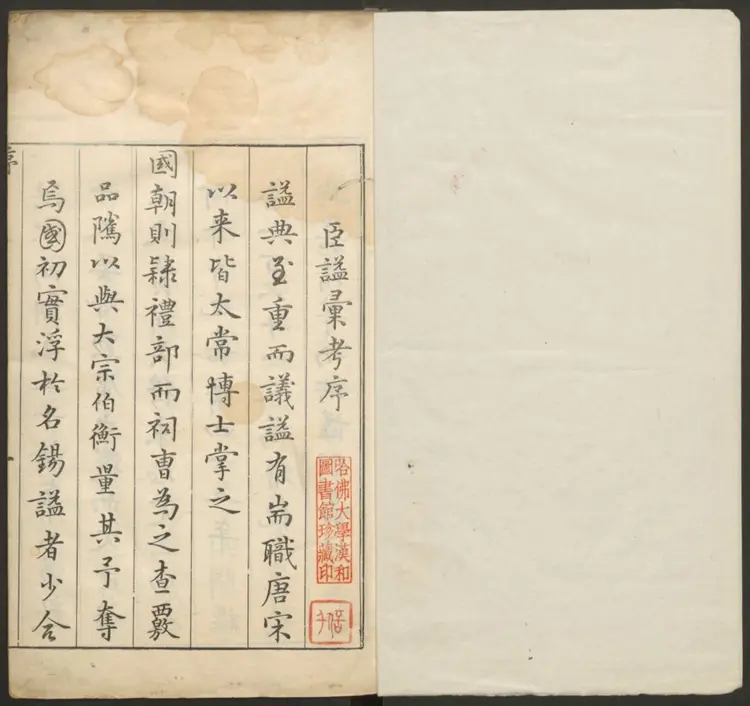 臣謚彙考序
謚典至重而議謚有耑職唐宋
以来皆太常博士掌之
國朝則隸禮部而祠曹為之查覈
品隲以與大宗伯衡量其予奪
焉國初實浮於名錫謚者少合
序
哈佛大學漢和
圖書館珍藏印